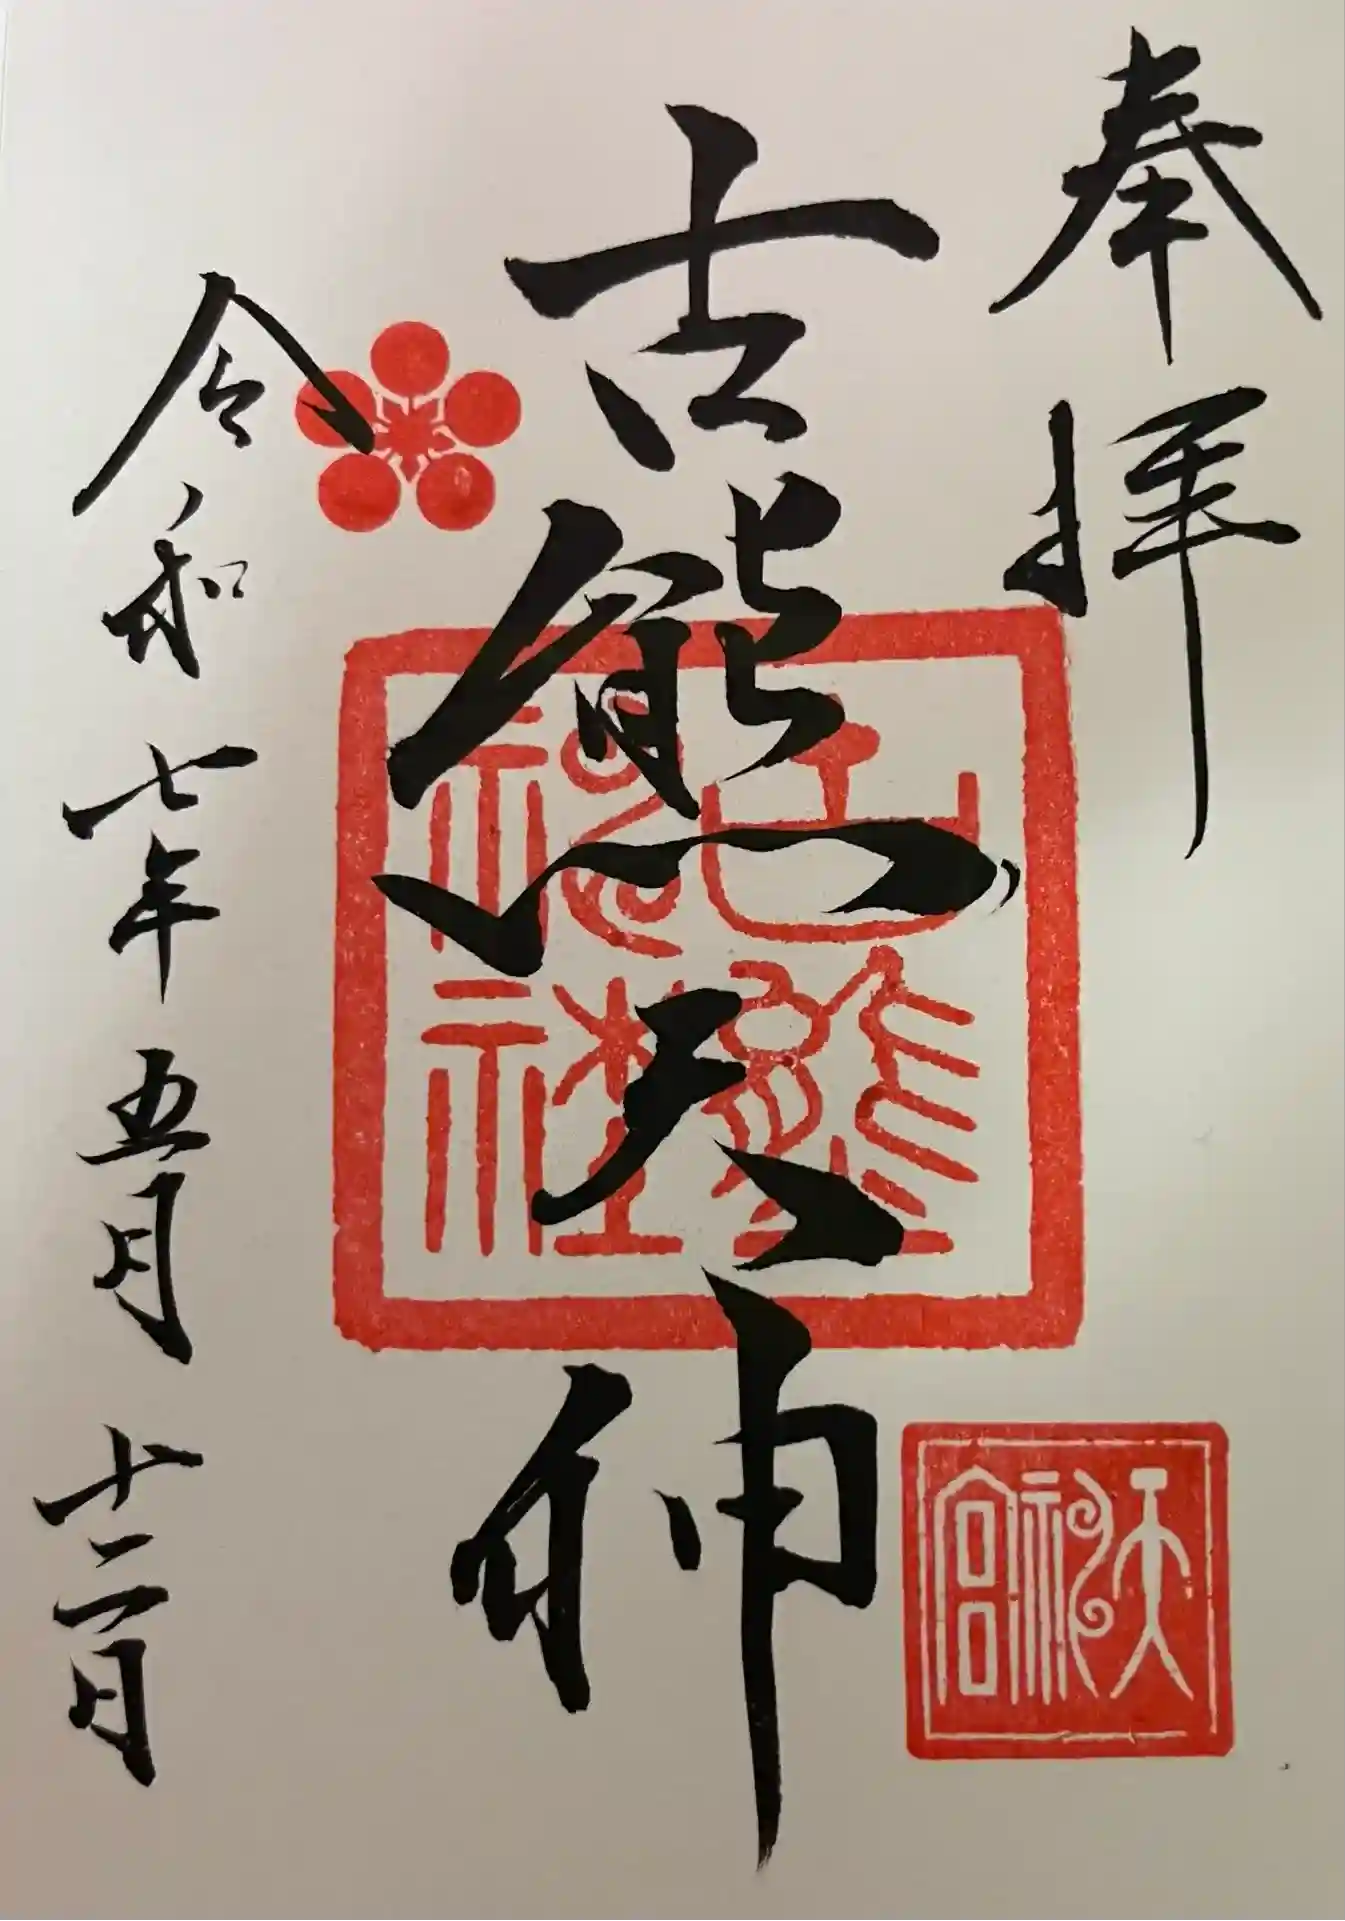 奉拝
古熊天神
令和七年五月十二日
古熊神社
天神宮